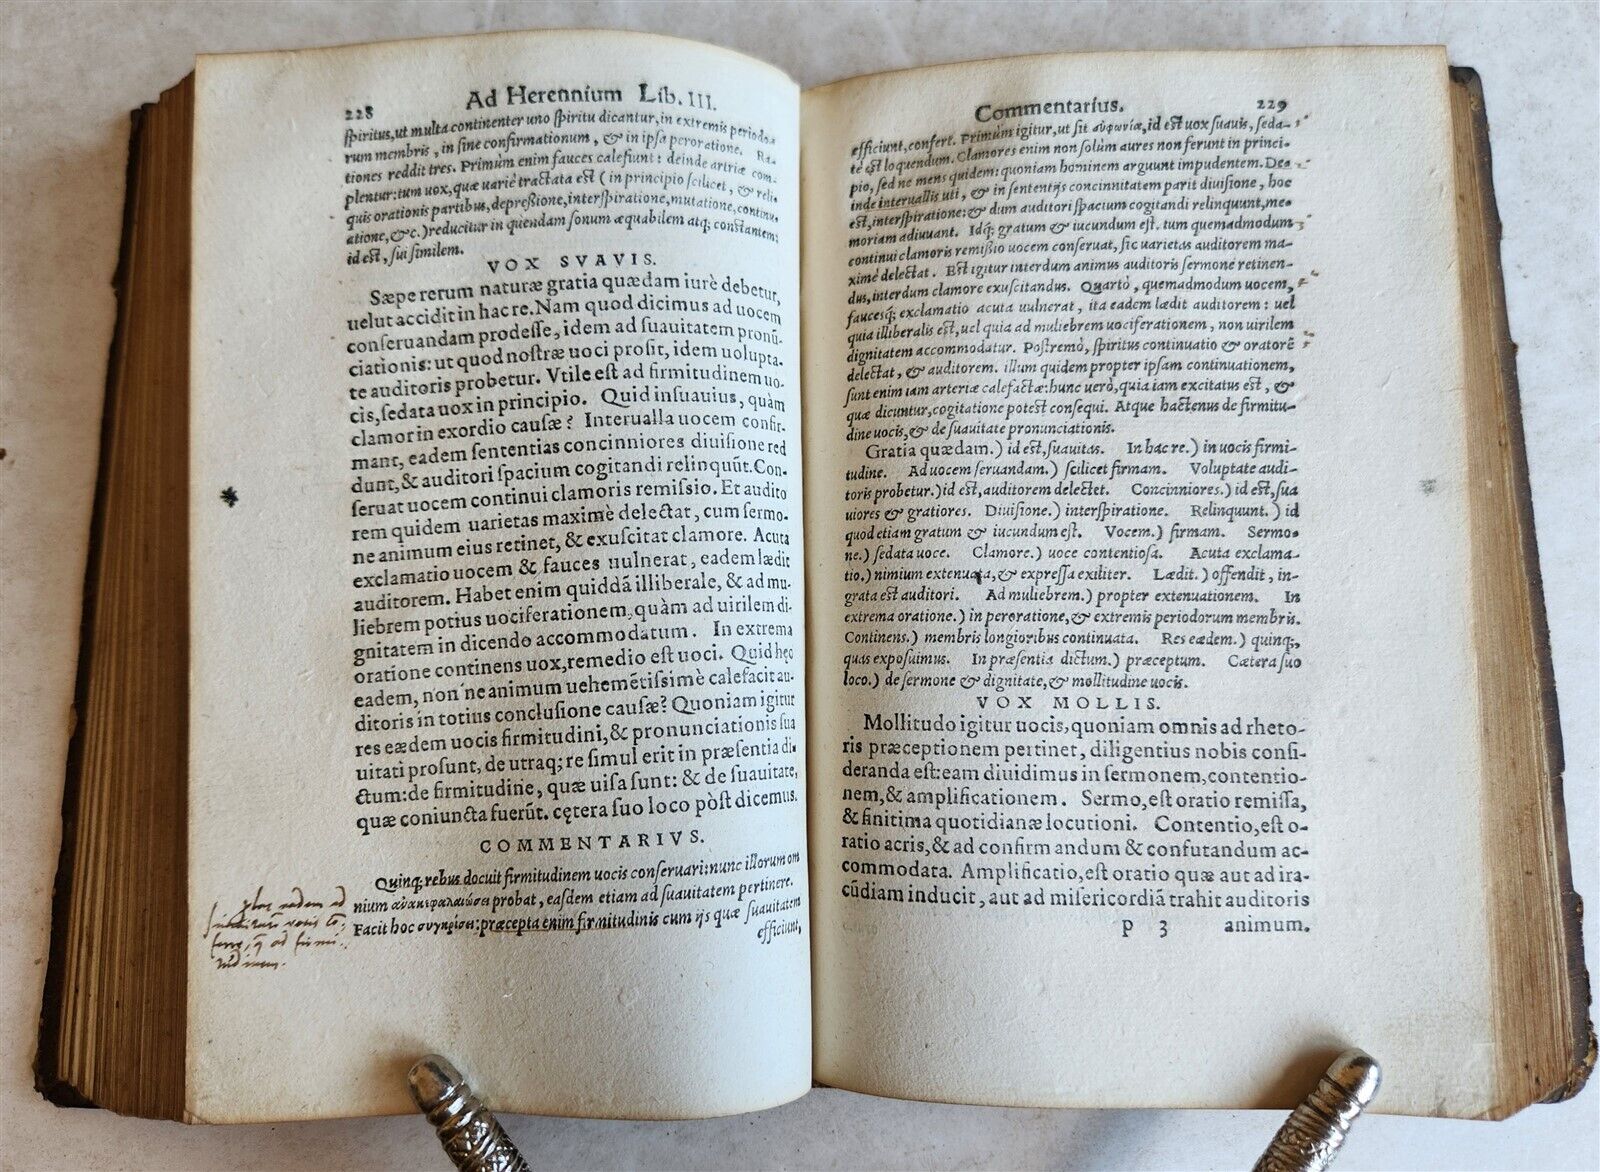 228
Ad Herennium Lib. III.
spiritus, ut multa continenter uno spiritu dicantur, in extremis periodo-
rum membris, in fine confirmationum, & in ipsa peroratione. Ra-
tiones reddit tres. Primùm enim fauces calefiunt: deinde artriæ com-
plentur: tum uox, quæ variè tractata est (in principio scilicet, & reli-
quis orationis partibus, depreßione, interspiratione, mutatione, continu-
atione, &c.) reducitur in quendam sonum æquabilem atq; constantem:
id est, sui similem.
VOX SVAVIS.
Sæpe rerum naturæ gratia quædam iurè debetur,
uelut accidit in hac re. Nam quod dicimus ad uocem
conseruandam prodesse, idem ad suauitatem pronũ-
ciationis: ut quod nostræ uoci prosit, idem uolupta-
te auditoris probetur. Vtile est ad firmitudinem uo-
cis, sedata uox in principio. Quid insuauius, quàm
clamor in exordio causæ? Interualla uocem confir-
mant, eadem sententias concinniores diuisione red
dunt, & auditori spacium cogitandi relinquũt. Con-
seruat uocem continui clamoris remissio. Et audito
rem quidem uarietas maximè delectat, cum sermo-
ne animum eius retinet, & exuscitat clamore. Acuta
exclamatio uocem & fauces uulnerat, eadem lædit
auditorem. Habet enim quiddã illiberale, & ad mu-
liebrem potius uociferationem, quàm ad uirilem di-
gnitatem in dicendo accommodatum. In extrema
oratione continens uox, remedio est uoci. Quid hęc
eadem, non'ne animum uehemẽtissimè calefacit au-
ditoris in totius conclusione causæ? Quoniam igitur
res eædem uocis firmitudini, & pronunciationis sua
uitati prosunt, de utraq; re simul erit in præsentia di-
ctum: de firmitudine, quæ uisa sunt: & de suauitate,
quæ coniuncta fuerũt. cętera suo loco pòst dicemus.
COMMENTARIVS.
Quinq; rebus docuit firmitudinem uocis conseruari: nunc illorum om
nium ἀνακεφαλαιώσει probat, easdem etiam ad suauitatem pertinere.
Facit hoc συγκρίσει: præcepta enim firmitudinis cum ijs quæ suauitatem
efficiunt,
Commentarius.
229
efficiunt, confert. Primùm igitur, ut sit εὐφωνίαε, id est uox suauis, seda-
tè est loquendum. Clamores enim non solùm aures non ferunt in princi-
pio, sed ne mens quidem: quoniam hominem arguunt impudentem. De-
inde interuallis uti, & in sententijs concinnitatem parit diuisione, hoc
est, interspiratione: & dum auditori spacium cogitandi relinquunt, me-
moriam adiuuant. Idq; gratum & iucundum est. tum quemadmodum
continui clamoris remißio uocem conseruat, sic uarietas auditorem ma-
ximè delectat. Est igitur interdum animus auditoris sermone retinen-
dus, interdum clamore exuscitandus. Quartò, quemadmodum uocem,
faucesq; exclamatio acuta uulnerat, ita eadem lædit auditorem: uel
quia illiberalis est, uel quia ad muliebrem uociferationem, non uirilem
dignitatem accommodatur. Postremò, spiritus continuatio & oratorẽ
delectat, & auditorem. illum quidem propter ipsam continuationem,
sunt enim iam arteriæ calefactæ: hunc uerò, quia iam excitatus est, &
quæ dicuntur, cogitatione potest consequi. Atque hactenus de firmitu-
dine uocis, & de suauitate pronunciationis.
Gratia quædam.) id est, suauitas. In hac re.) in uocis firmi-
tudine. Ad uocem seruandam.) scilicet firmam. Voluptate audi-
toris probetur.) id est, auditorem delectet. Concinniores.) id est, sua
uiores & gratiores. Diuisione.) interspiratione. Relinquunt.) id
quod etiam gratum & iucundum est. Vocem.) firmam. Sermo-
ne.) sedata uoce. Clamore.) uoce contentiosa. Acuta exclama-
tio.) nimium extenuata, & expressa exiliter. Lædit.) offendit, in-
grata est auditori. Ad muliebrem.) propter extenuationem. In
extrema oratione.) in peroratione, & extremis periodorum membris.
Continens.) membris longioribus continuata. Res eædem.) quinq;,
quas exposuimus. In præsentia dictum.) præceptum. Cætera suo
loco.) de sermone & dignitate, & mollitudine uocis.
VOX MOLLIS.
Mollitudo igitur uocis, quoniam omnis ad rheto-
ris præceptionem pertinet, diligentius nobis consi-
deranda est: eam diuidimus in sermonem, contentio-
nem, & amplificationem. Sermo, est oratio remissa,
& finitima quotidianæ locutioni. Contentio, est o-
ratio acris, & ad confirmandum & confutandum ac-
commodata. Amplificatio, est oratio quæ aut ad ira-
cũdiam inducit, aut ad misericordiã trahit auditoris
p 3
animum.